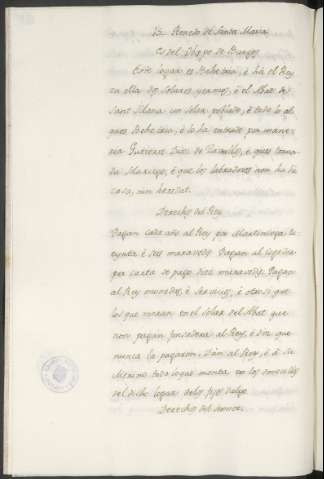 Renedo de Santa Maria
Es del Obispo de Burgos
Este logar es Behetria, é há el Rey
en ella dos solares yermos, é el Abat de
Sant Illana un solar poblado, é todo lo al
que es Behetria, é lo ha entrado por mane
ria Gutierre Diez de é que es toma
da é que los labradores non ha de
casa, nin heredat.
Derechos del Rey
Pagan cada año al Rey por Martiniega tre
ynta é seis maravedis Pagan al
por carta de pago diez maravedis. Pagan
al Rey monedas, é servicios, é otrosi que
los que moran en el solar del Abat que
non pagan fonsadera al Rey, é dis que
nunca la pagaron. Dan al Rey, é á su
Merino todo lo que monta en los
del dicho logar delos fijos dalgo.
Derechos del Señor.